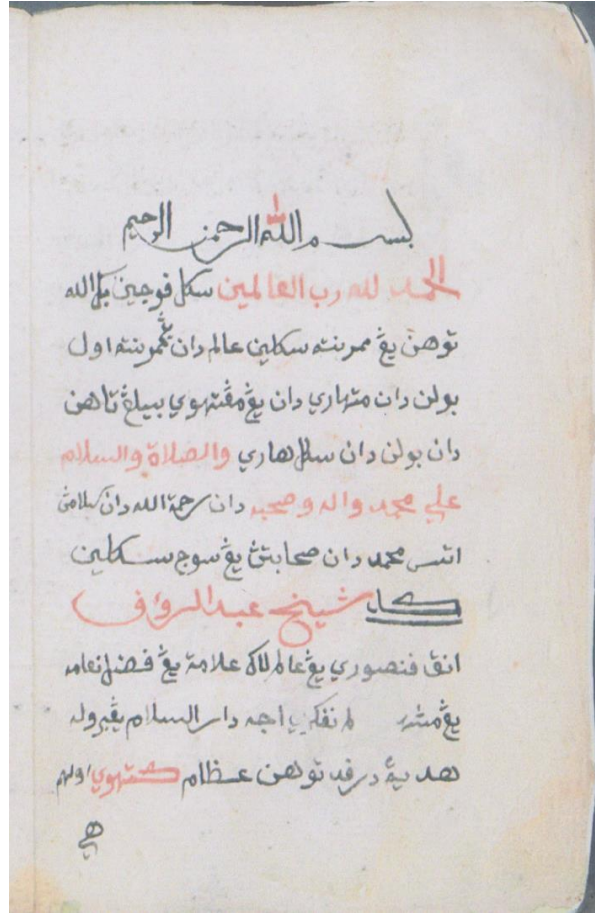 بسم الله الرحمن الرحيم
الحمد لله رب العالمين سكل فوجين بڬ الله
توهن يڠ ممرنته سكلين عالم دان يڠ ممرنته اول
بولن دان متهاري دان يڠ مڠتهوي بيلڠ تاهن
دان بولن دان سكل هاري والصلاة والسلام
علي محمد واله وصحبه دان رحمة الله دان سلامڽ
اتس محمد دان صحابتڽ يڠ سوچ سكلين
شيخ عبد الرؤف
انق فنصوري يڠ عالم لاڬ علامة يڠ
يڠ دار السلام
هديه درفد توهن عظام كتهوي اولهم
هي